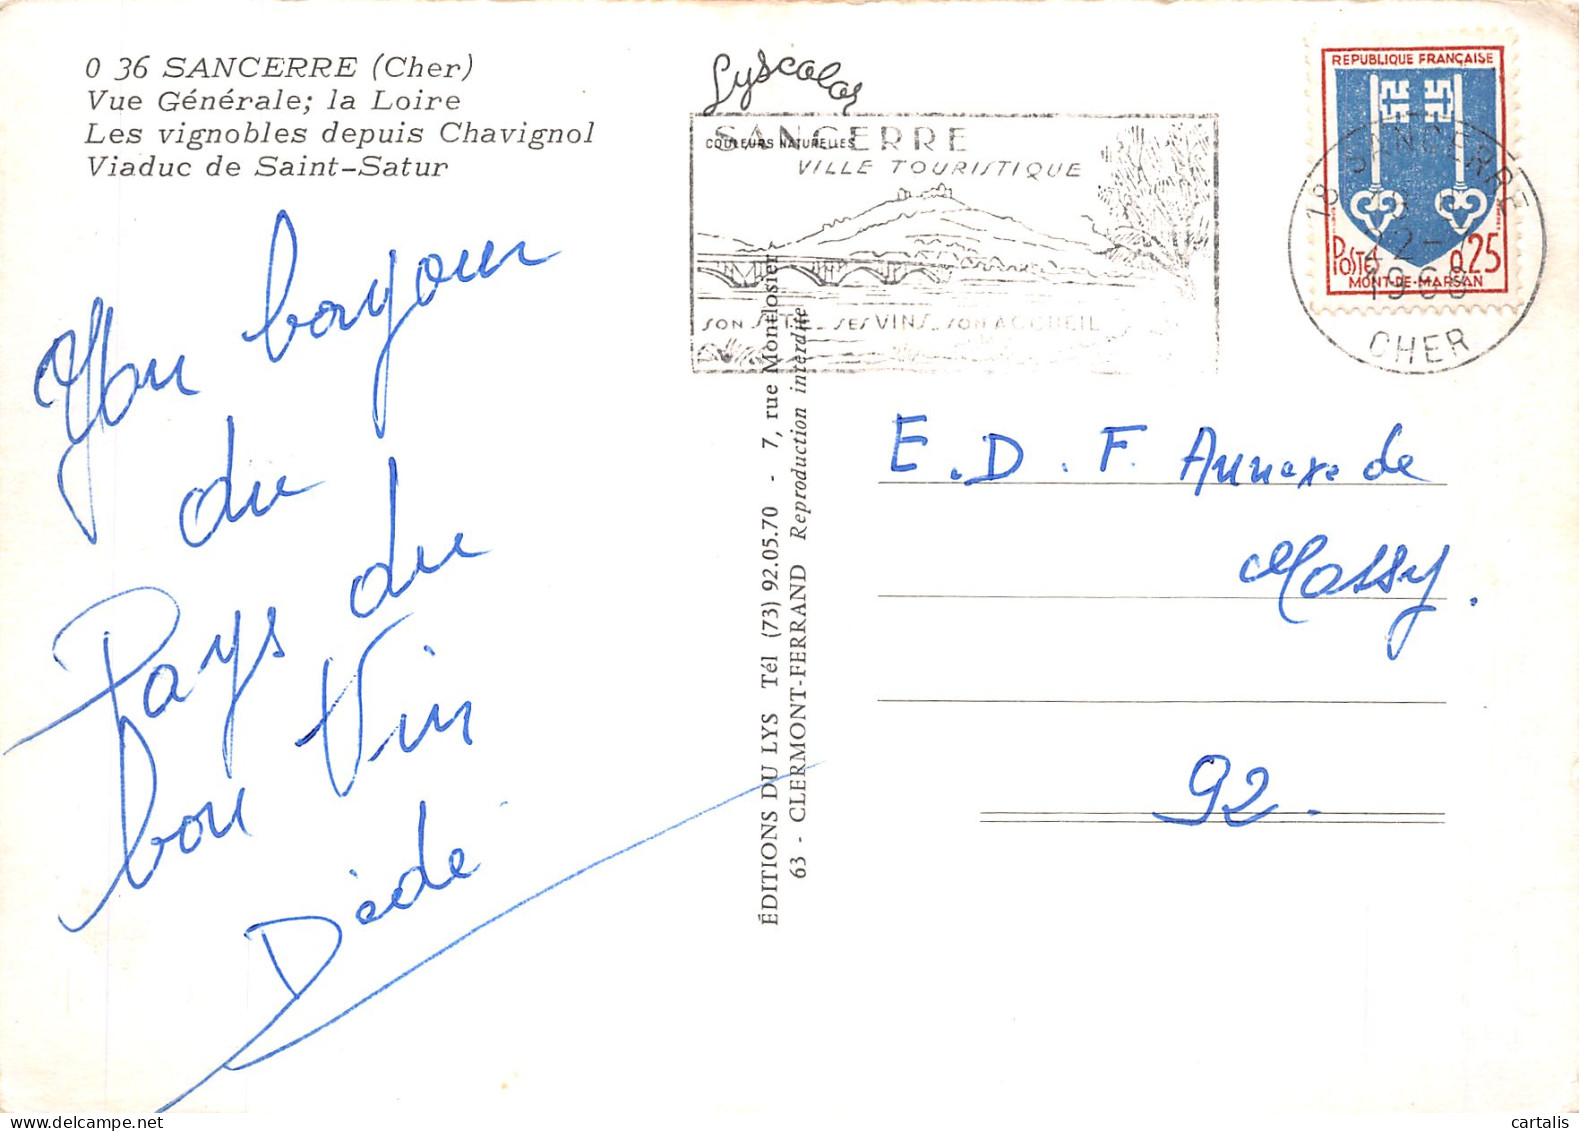 0 36 SANCERRE (Cher)
Vue Générale; la Loire
Les vignobles depuis Chavignol
Viaduc de Saint-Satur
Mon bonjour
du
Pays du
bon Vin
Dédé
Lyscolor
COULEURS NATURELLES
SANCERRE
VILLE TOURISTIQUE
SON SITE _ SES VINS _ SON ACCUEIL
REPUBLIQUE FRANÇAISE
POSTES 0,25
MONT-DE-MARSAN
18 SANCERRE
22-
1968
CHER
ÉDITIONS DU LYS Tél (73) 92.05.70 - 7, rue Montlosier
63 - CLERMONT-FERRAND Reproduction interdite
E.D.F. Annexe de
Massy.
92.
cartalis